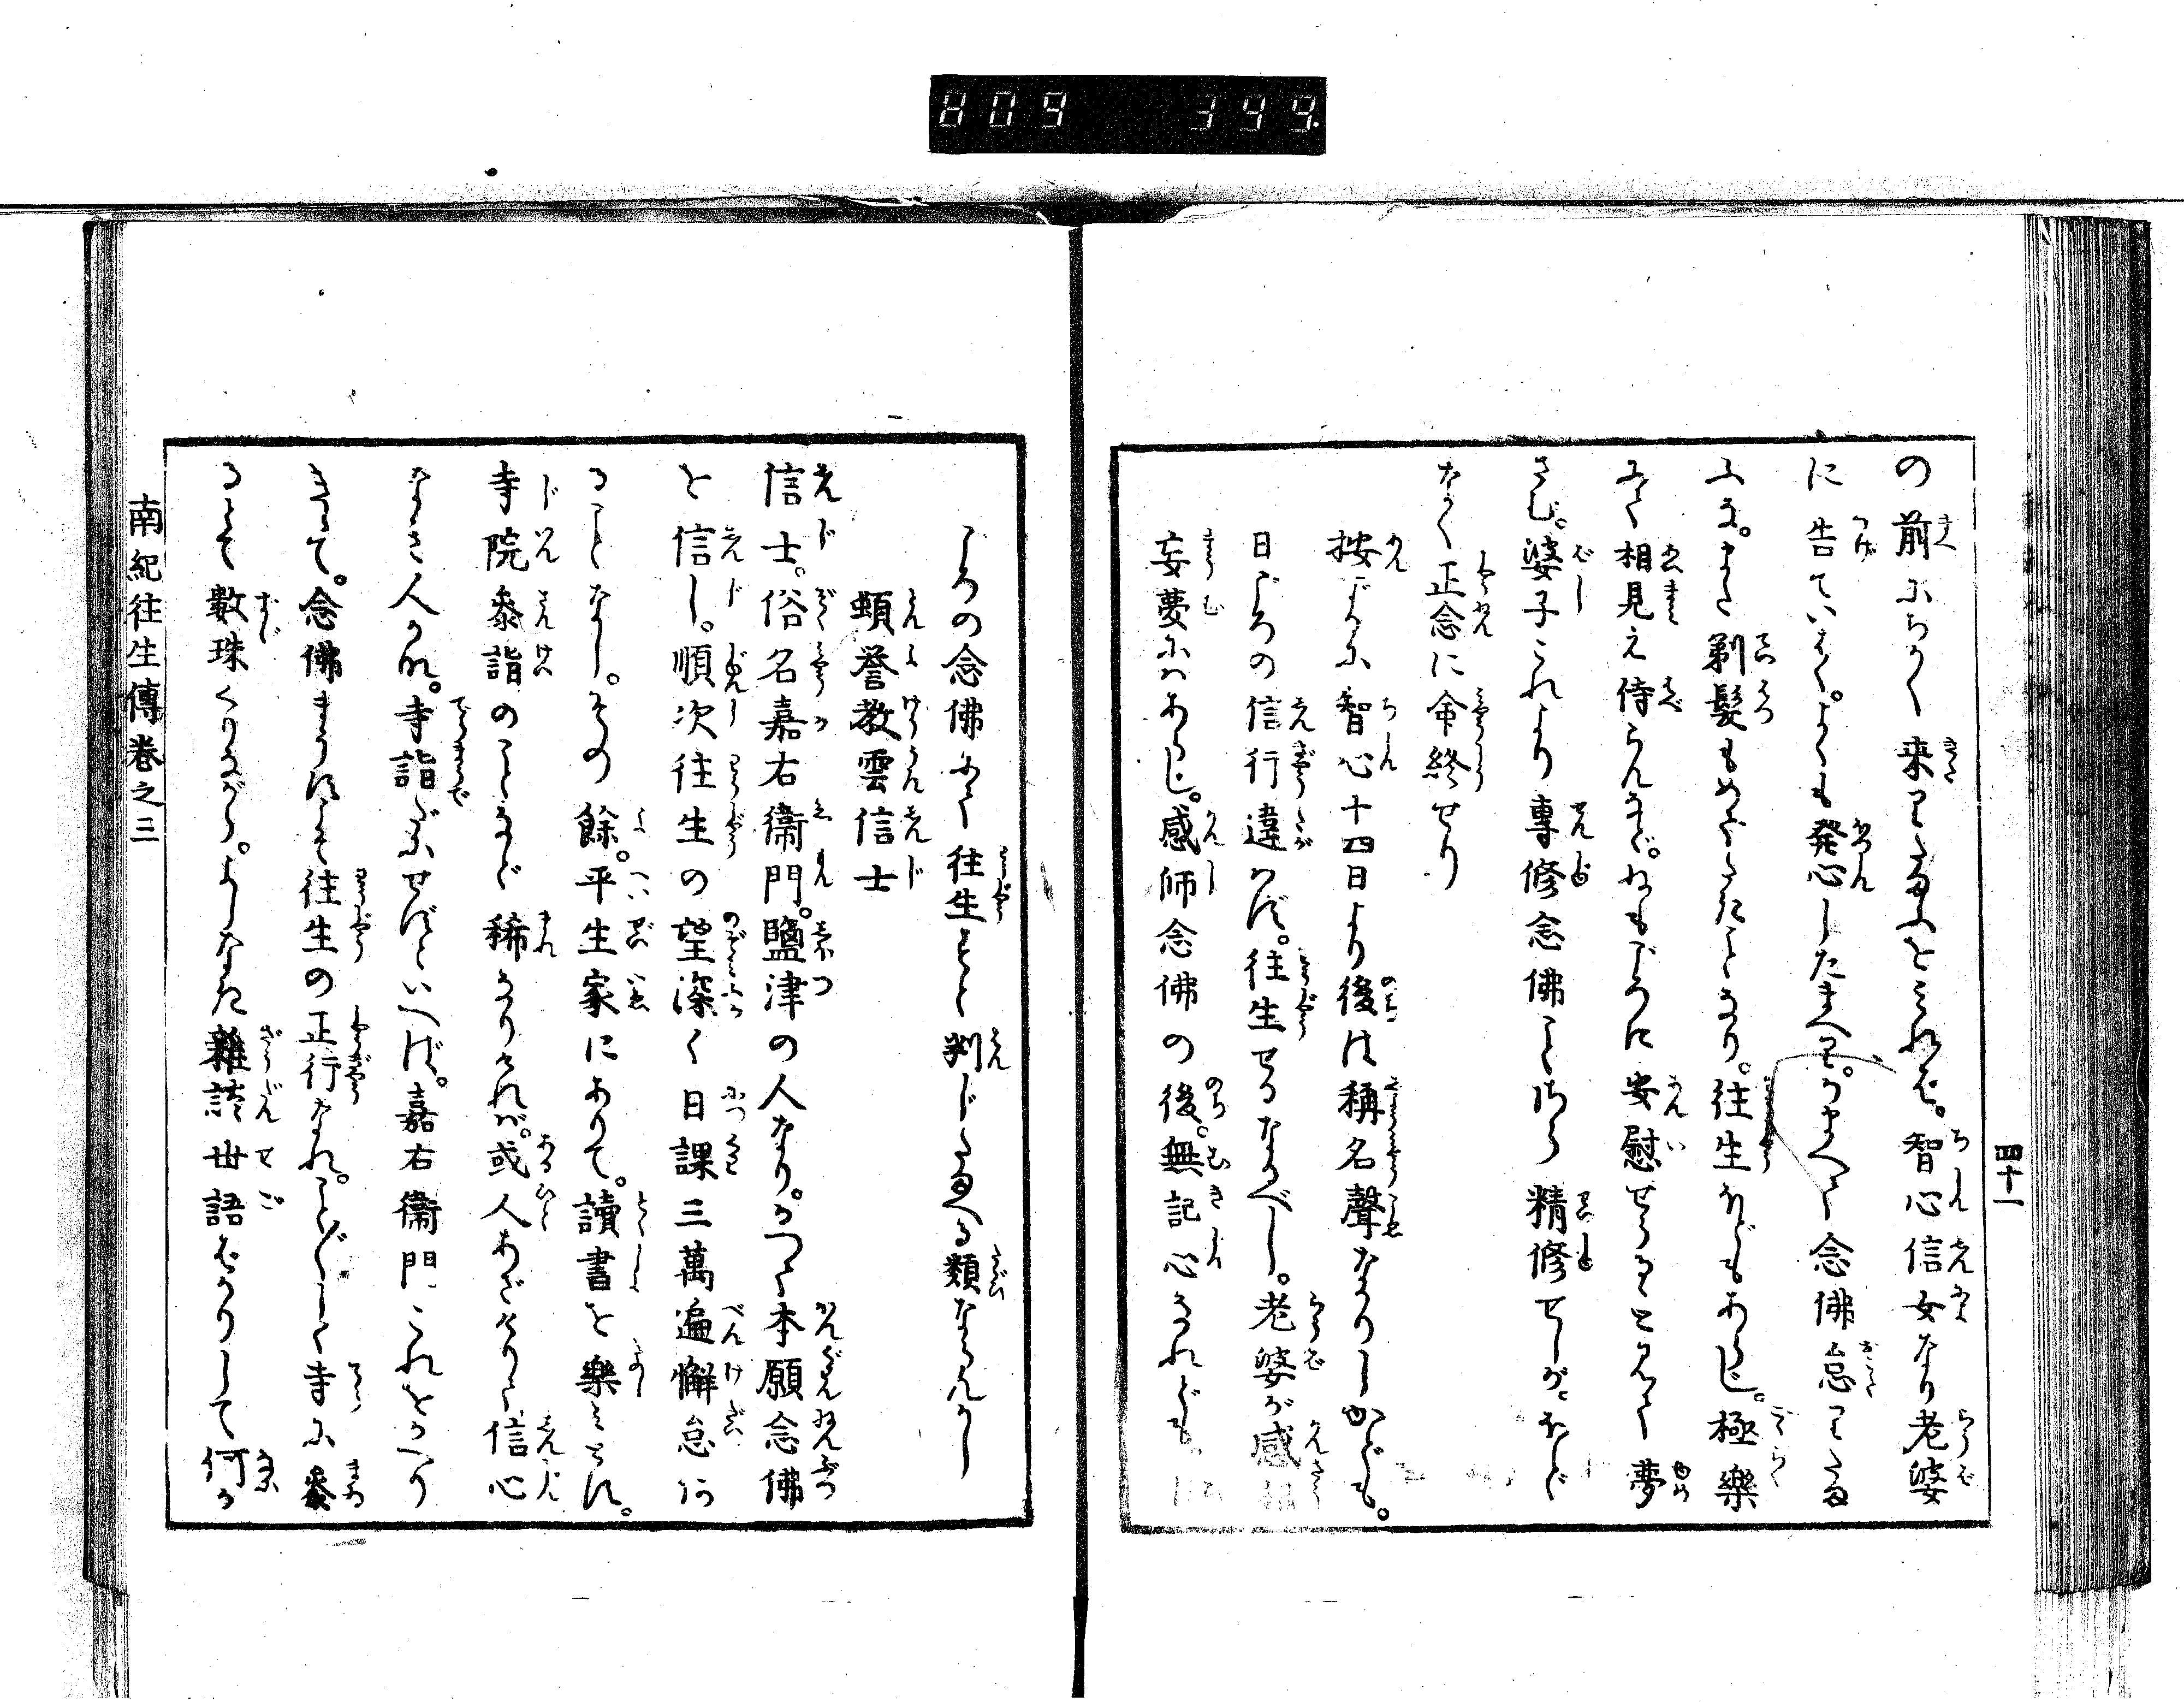 809 399.
四十一
の前にちかく来りたまふをみれば。智心信女なり老婆
に告ていはく。よくも発心したまへり。かまへて念佛怠りたま
ふな。また剃髪もめでたきことなり。往生ほどもあらじ。極樂
にて相見え侍らんなど。ねもごろに安慰せらるとみて夢
さむ。婆子これより專修念佛しこれら精修せしが。ほど
なく正念に命終せり
按ずるに智心十四日より後は稱名聲なかりしかども。
日ごろの信行違はば。往生せるなるべし。老婆が感
妄夢にはあらじ。感師念佛の後。無記心なれども。
ごろの念佛にて往生すと判じたまへる類ならんかし
蝢誉教雲信士
信士。俗名嘉右衞門。鹽津の人なり。かつて本願念佛
を信し。順次往生の望深く日課三萬遍懈怠に
ることなし。その餘。平生家にありて。讀書を樂みとす。
寺院参詣のことなど稀なりければ。或人あざけりて信心
なき人かな。寺詣だにせずといへば。嘉右衞門これをかへり
きて。念佛まうすこそ往生の正行なれ。ことごとしく寺に参
るとて數珠くりながら。よしなき雜談世語ばかりして何か
南紀往生傳巻之三